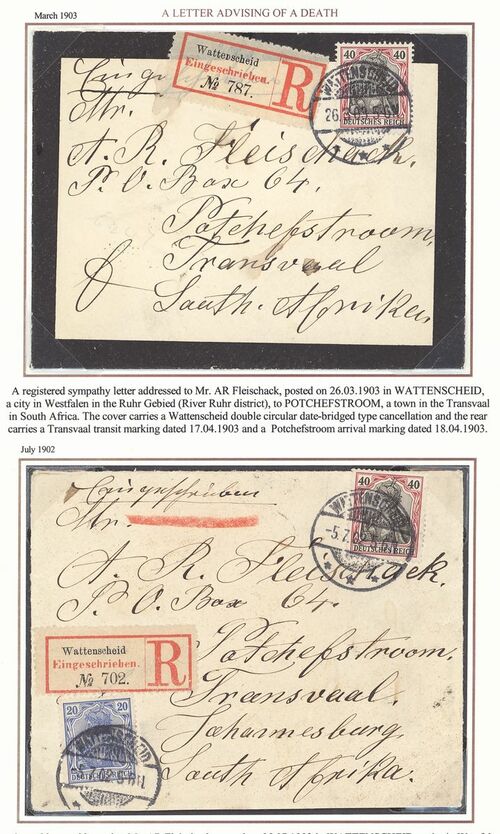 March 1903
A LETTER ADVISING OF A DEATH
Wattenscheid
Eingeschrieben.
№ 787.
R
40 40
DEUTSCHES REICH
WATTENSCHEID
26.3.03
Mr.
A. R. Fleischack.
P. O. Box 64.
Potchefstroom,
Transvaal
South. Afrika
A registered sympathy letter addressed to Mr. AR Fleischack, posted on 26.03.1903 in WATTENSCHEID,
a city in Westfalen in the Ruhr Gebied (River Ruhr district), to POTCHEFSTROOM, a town in the Transvaal
in South Africa. The cover carries a Wattenscheid double circular date-bridged type cancellation and the rear
carries a Transvaal transit marking dated 17.04.1903 and a Potchefstroom arrival marking dated 18.04.1903.
July 1902
Eingeschrieben
40 40
DEUTSCHES REICH
WATTENSCHEID
Mr.
A. R. Fleischack.
P. O. Box 64.
Wattenscheid
Eingeschrieben.
№ 702.
R
Potchefstroom.
Transvaal.
Johannesburg
South Afrika.
20 20
DEUTSCHES REICH
WATTENSCHEID